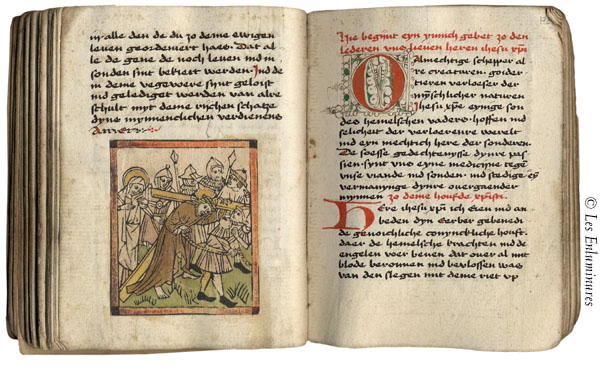 in alle den de du zo deme ewigen
leuen geordeniert haes. Dat al
le de gene de noch leuen ind in
sonden sint bekiert werden. Ind de
in deme vegevure sijnt geloist
ind gelediget werden van alre
schult myt deme rijchen schatze
dyns mynnenclichen verdienens
Amen
Hie begynt eyn ynnich gebet zo den
lederen uns lieuen heren ihesu xpi
O Almechtige schepper al
re creaturen. goider
tieren verloeser der
mynschlicher naturen
Ihesu xpe. eynige son
des hemelschen vaders. hoffen ind
selicheit der verloerenre werelt
ind eyn mechtich here der sonderen.
De soesse gedechtenysse dynre pas
sien. synt uns eyne medicyne tege
unse viande ind sonden. ind stedige
vermanynge dynre overgaender
mynnen zo deme houfde xpisti.
Here ihesu xpi ich eren ind an
beden dyn eerber gebenedi
de genoichliche houft.
daer de hemelsche brachten ind de
engelen voer beuen dat ouer al mit
blode berounen ind bevlossen was
van den slegen mit deme riet up
© Les Enluminures